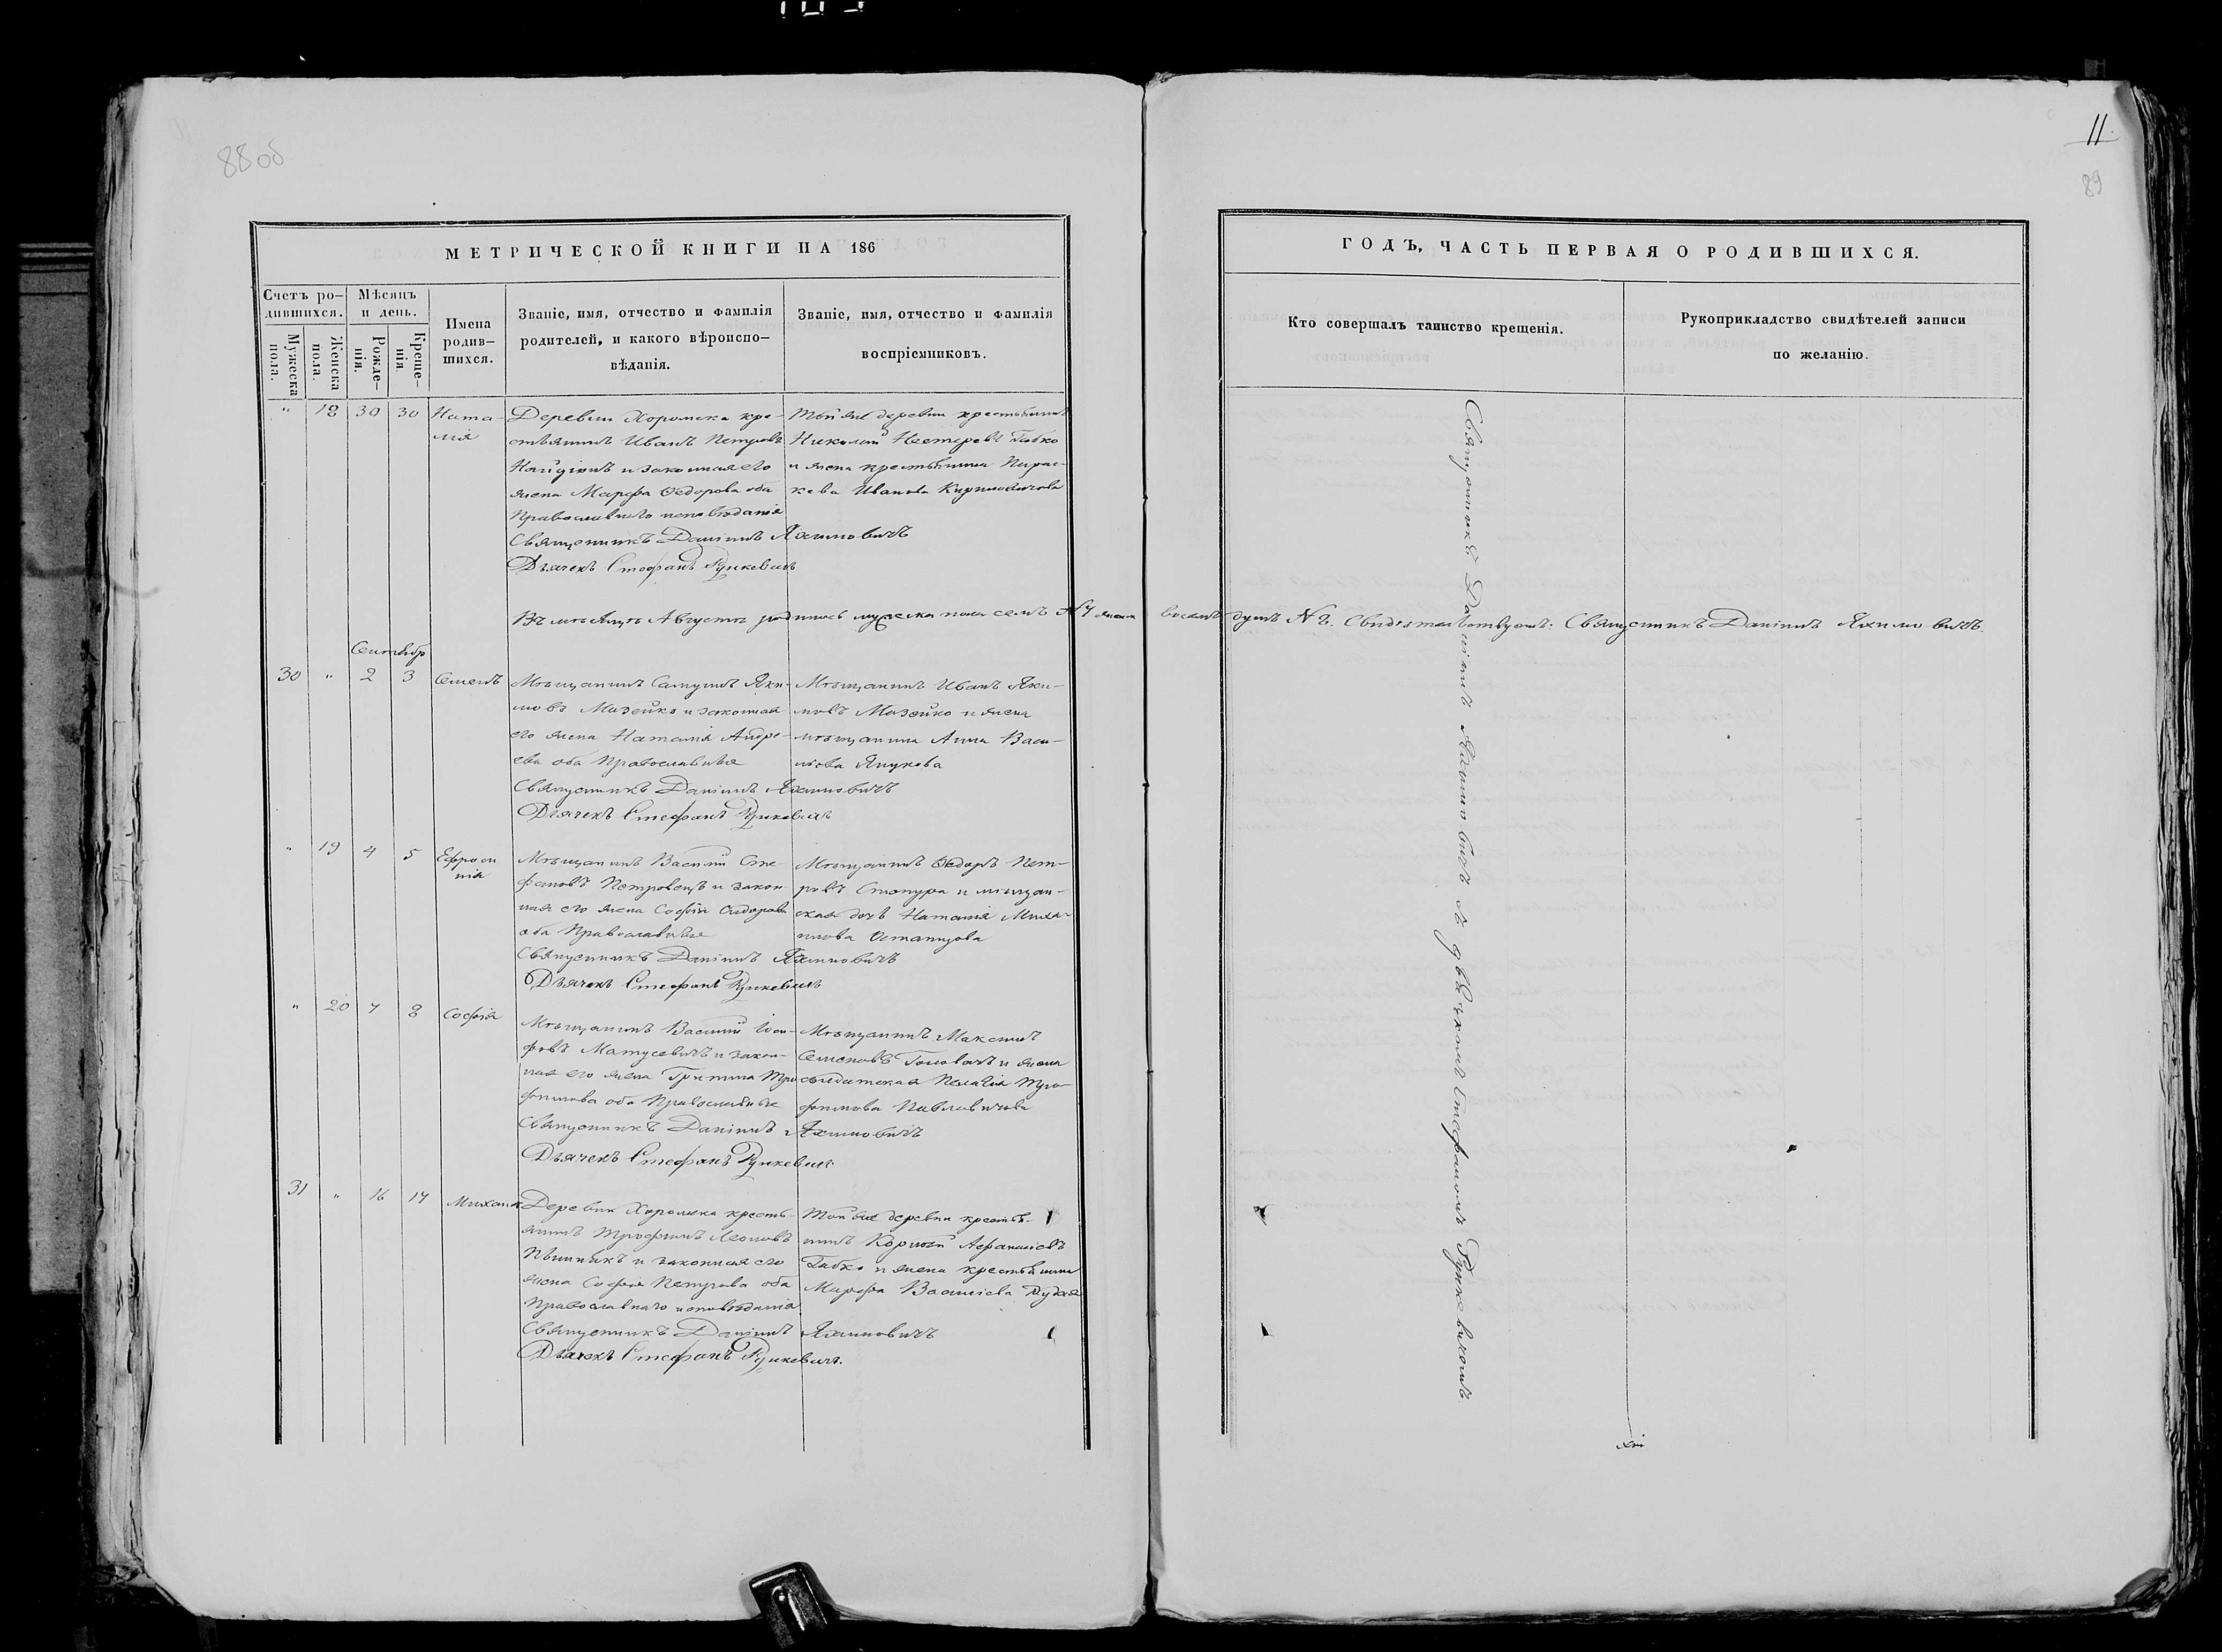 88 об
11.
89
МЕТРИЧЕСКОЙ КНИГИ НА 186
Счетъ ро-
дившихся.
Мужеска
пола.
Женска
пола.
Мѣсяцъ
и день.
Рожде-
нія.
Креще-
нія
Имена
родив-
шихся.
Званіе, имя, отчество и фамилія
родителей, и какого вѣроиспо-
вѣданія.
Званіе, имя, отчество и фамилія
воспріемниковъ.
" 18 30 30
Ната-
лія
Деревни Хоромска кре-
стьянинъ Иванъ Петровъ
и законная его
жена Марфа Ѳедорова оба
Православнаго исповѣданія
Священникъ Даніилъ Яхимовичъ
Дьячекъ Стефанъ Рункевичъ
Той же деревни крестьянинъ
Николай Нестеровъ Габко
и жена крестьянина Парас-
кева Иванова Кириловичова
Въ мѣсяцѣ Августѣ родилось мужеска пола семь №7 женска восемь душъ №8. Свидѣтельствуютъ: Священникъ Даніилъ Яхимовичъ.
Сентябр
30 " 2 3
Семенъ
Мѣщанинъ Яки-
мовъ Мазейко и законная
его жена Наталія Андре-
ева оба Православные
Священникъ Даніилъ Яхимовичъ
Дьячекъ Стефанъ Рункевичъ
Мѣщанинъ Иванъ Яки-
мовъ Мазейко и жена
мѣщанина Анна Васи-
льова
" 19 4 5
Ефроси
нія
Мѣщанинъ Василій Сте-
фановъ Петровецъ и закон-
ная его жена Софія Сидорова
оба Православные
Священникъ Даніилъ Яхимовичъ
Дьячекъ Стефанъ Рункевичъ
Мѣщанинъ Ѳедоръ Пет-
ровъ и мѣщан-
ская дочь Наталія Миха-
илова
" 20 7 8
Софія
Мѣщанинъ Василій Іоси-
фовъ Матусевичъ и закон-
ная его жена Тро-
фимова оба Православные
Священникъ Даніилъ Яхимовичъ
Дьячекъ Стефанъ Рункевичъ
Мѣщанинъ Максимъ
Семеновъ Головачъ и жена
солдатская Пелагія Тро-
фимова Павловичова
31 " 16 17
Михаилъ
Деревни Хоромска кресть-
янинъ Трофимъ Леоновъ
и законная его
жена Софія Петрова оба
Православнаго исповѣданія
Священникъ Даніилъ Яхимовичъ
Дьячекъ Стефанъ Рункевичъ.
Той же деревни крестья-
нинъ Корнилій Афанасіевъ
Габко и жена крестьянина
Марфа Василіева
ГОДЪ, ЧАСТЬ ПЕРВАЯ О РОДИВШИХСЯ.
Кто совершалъ таинство крещенія.
Рукоприкладство свидѣтелей записи
по желанію.
Священникъ Даніилъ Яхимовичъ съ дьячкомъ Стефаномъ Рункевичомъ.